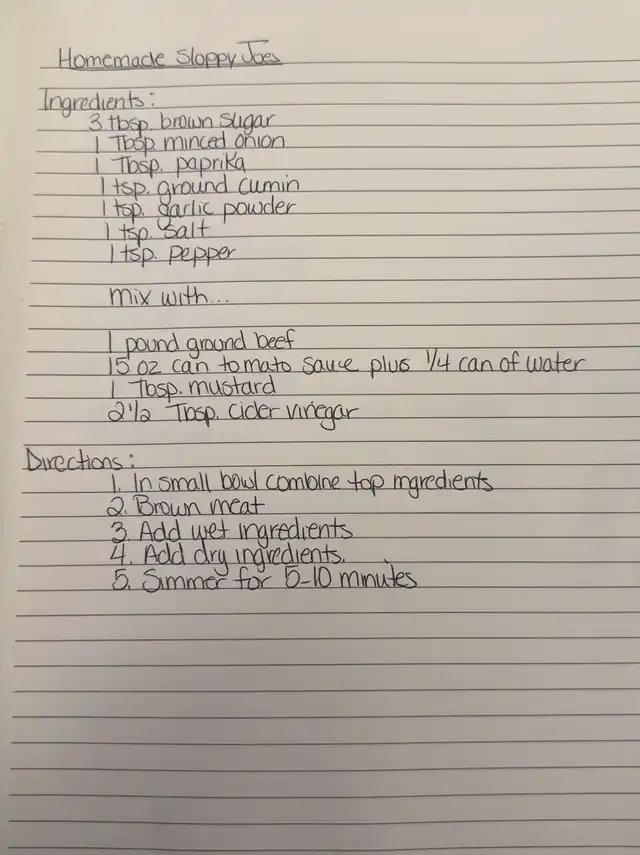 Homemade Sloppy Joes
Ingredients:
3 tbsp. brown sugar
1 Tbsp minced onion
1 Tbsp. paprika
1 tsp. ground cumin
1 tsp. garlic powder
1 tsp. salt
1 tsp. pepper
mix with...
1 pound ground beef
15 oz can tomato sauce plus 1/4 can of water
1 Tbsp. mustard
2 1/2 Tbsp. cider vinegar
Directions:
1. In small bowl combine top ingredients
2. Brown meat
3. Add wet ingredients
4. Add dry ingredients.
5. Simmer for 5-10 minutes